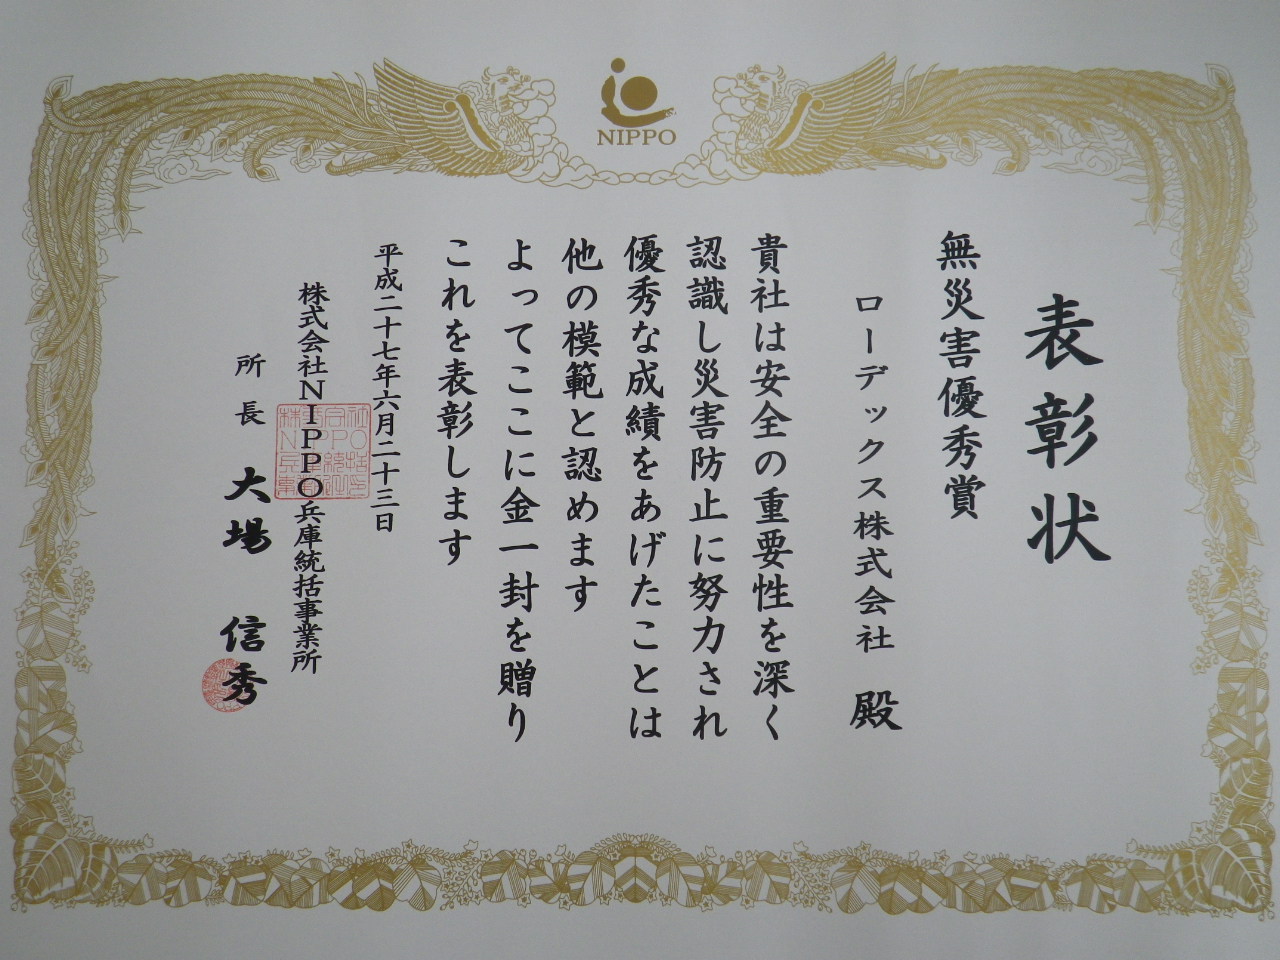 NIPPO
表彰状
無災害優秀賞
ローデックス株式会社 殿
貴社は安全の重要性を深く
認識し災害防止に努力され
優秀な成績をあげたことは
他の模範と認めます
よってここに金一封を贈り
これを表彰します
平成二十七年六月二十三日
株式会社NIPPO兵庫統括事業所
所長 大場 信秀